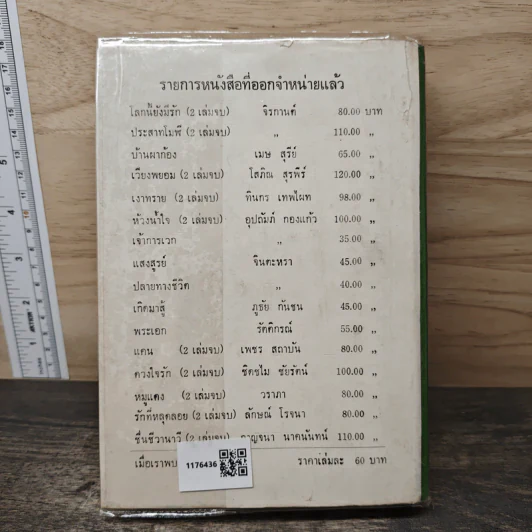 รายการหนังสือที่ออกจำหน่ายแล้ว
โลกนี้ยังมีรัก (2 เล่มจบ) จิรกานต์ 80.00 บาท
ประสาทโมพี (2 เล่มจบ) " 110.00 "
บ้านผาก้อง เมษ สุรีย์ 65.00 "
เวียงพยอม (2 เล่มจบ) โสภิณ สุรพีร์ 120.00 "
เงาทราย (2 เล่มจบ) ทินกร เทพไผท 98.00 "
ห้วงน้ำใจ (2 เล่มจบ) อุปถัมภ์ กองแก้ว 100.00 "
เจ้าการเวก " 35.00 "
แสงสูรย์ จินตะหรา 45.00 "
ปลายทางชีวิต " 40.00 "
เกิดมาสู้ ภูธัย กันชน 45.00 "
พระเอก รัตติกรณ์ 55.00 "
แคน (2 เล่มจบ) เพชร สถาบัน 80.00 "
ดวงใจรัก (2 เล่มจบ) ชิดชไม ชัยรัตน์ 100.00 "
หมูแดง (2 เล่มจบ) วราภา 80.00 "
รักที่หลุดลอย (2 เล่มจบ) ลักษณ์ โรจนา 80.00 "
ชื่นชีวานาวี (2 เล่มจบ) นาคนันทน์ 110.00 "
เมื่อเราพบ ราคาเล่มละ 60 บาท
1176436